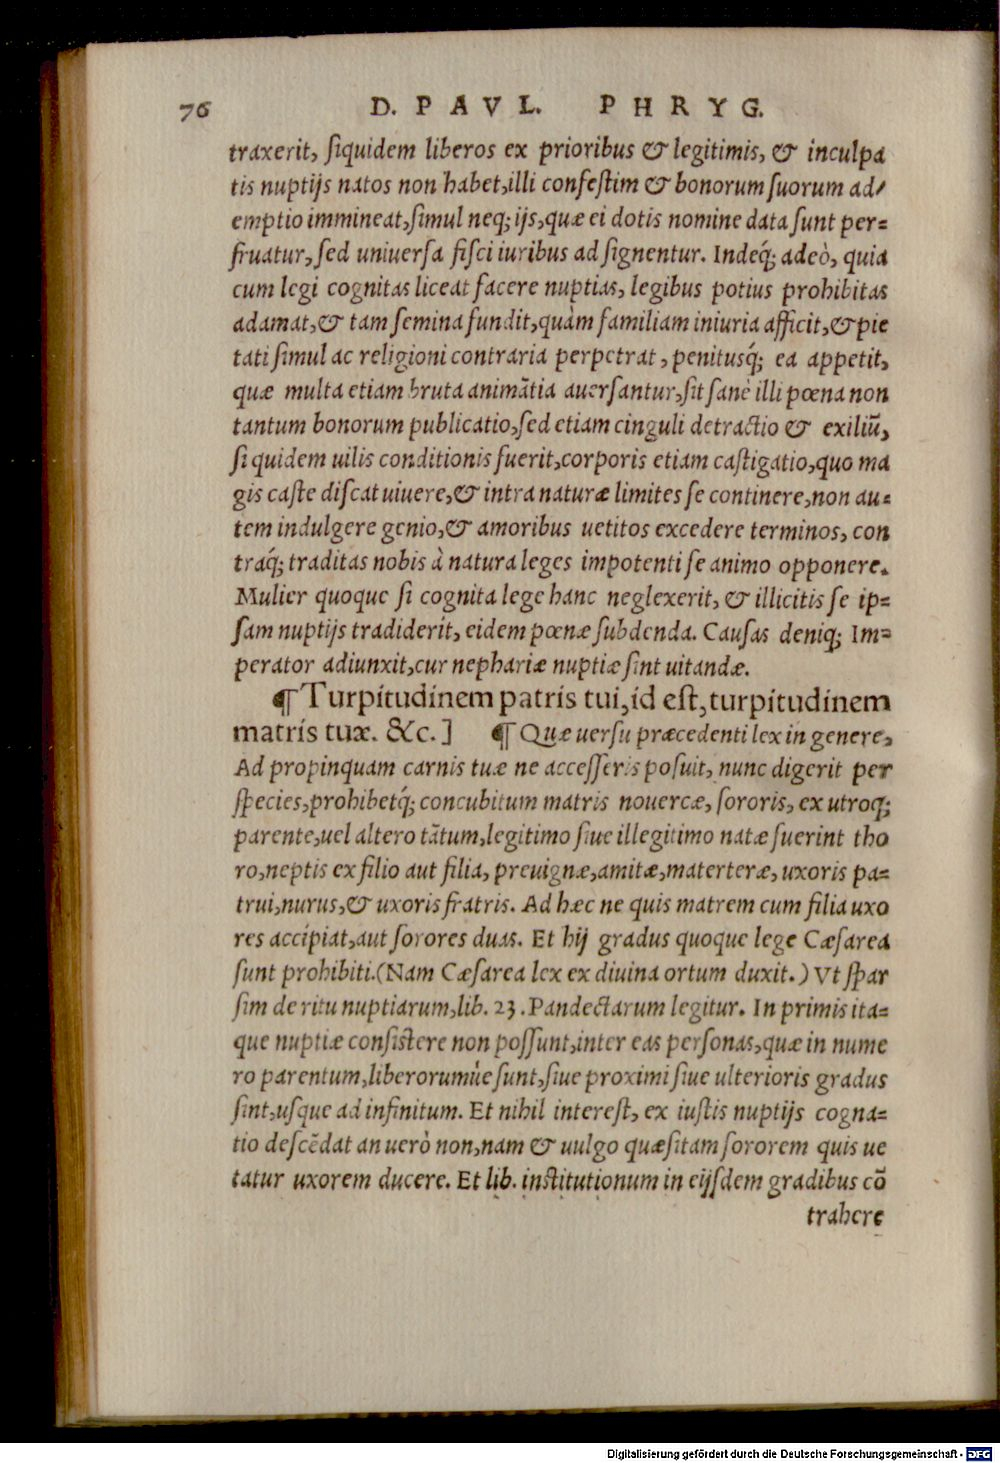 76 D. PAVL. PHRYG.
traxerit, siquidem liberos ex prioribus & legitimis, & inculpa
tis nuptijs natos non habet, illi confestim & bonorum suorum ad/
emptio immineat, simul neq; ijs, quæ ei dotis nomine data sunt per=
fruatur, sed uniuersa fisci iuribus ad signentur. Indeq́; adeò, quia
cum legi cognitas liceat facere nuptias, legibus potius prohibitas
adamat, & tam semina fundit, quàm familiam iniuria afficit, & pie
tati simul ac religioni contraria perpetrat, penitusq́; ea appetit,
quæ multa etiam bruta animātia auersantur, sit sanè illi pœna non
tantum bonorum publicatio, sed etiam cinguli detractio & exiliū,
si quidem uilis conditionis fuerit, corporis etiam castigatio, quo ma
gis caste discat uiuere, & intra naturæ limites se continere, non au=
tem indulgere genio, & amoribus uetitos excedere terminos, con
traq́; traditas nobis à natura leges impotenti se animo opponere.
Mulier quoque si cognita lege hanc neglexerit, & illicitis se ip=
sam nuptijs tradiderit, eidem pœnæ subdenda. Causas deniq; Im=
perator adiunxit, cur nephariæ nuptiæ sint uitandæ.
¶ Turpitudinem patris tui, id est, turpitudinem
matris tuæ. &c.] ¶ Quæ uersu præcedenti lex in genere,
Ad propinquam carnis tuæ ne accesseris posuit, nunc digerit per
species, prohibetq́; concubitum matris nouercæ, sororis, ex utroq;
parente, uel altero tātum, legitimo siue illegitimo natæ fuerint tho
ro, neptis ex filio aut filia, preuignæ, amitæ, materteræ, uxoris pa=
trui, nurus, & uxoris fratris. Ad hæc ne quis matrem cum filia uxo
res accipiat, aut sorores duas. Et hij gradus quoque lege Cæsarea
sunt prohibiti. (Nam Cæsarea lex ex diuina ortum duxit.) Vt spar
sim de ritu nuptiarum, lib. 23. Pandectarum legitur. In primis ita=
que nuptiæ consistere non possunt, inter eas personas, quæ in nume
ro parentum, liberorumúe sunt, siue proximi siue ulterioris gradus
sint, usque ad infinitum. Et nihil interest, ex iustis nuptijs cogna=
tio descēdat an uerò non, nam & uulgo quæsitam sororem quis ue
tatur uxorem ducere. Et lib. institutionum in eijsdem gradibus cō
trahere
Digitalisierung gefördert durch die Deutsche Forschungsgemeinschaft - DFG